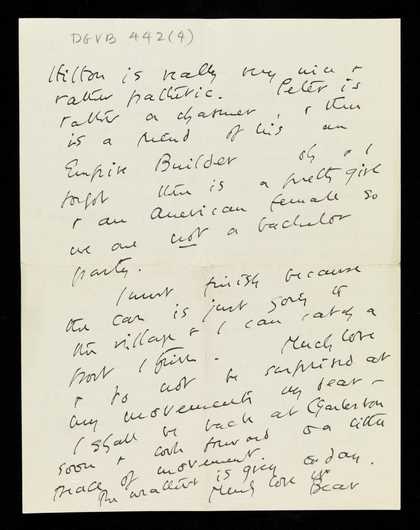 DGVB 442(4)
Hilton is really very nice +
rather pathetic. Peter is
rather a charmer, + there
is a friend of his an
Empire Builder oh + I
forgot there is a pretty girl
+ an American female so
we are not a bachelor
party.
I must finish because
the car is just going to
the village + I can catch a
post I think. Much love
+ do not be surprised at
any movements my dear –
I shall be back at Charleston
soon + look forward to a little
peace of movement.
The weather is grey today.
Much love
Bear